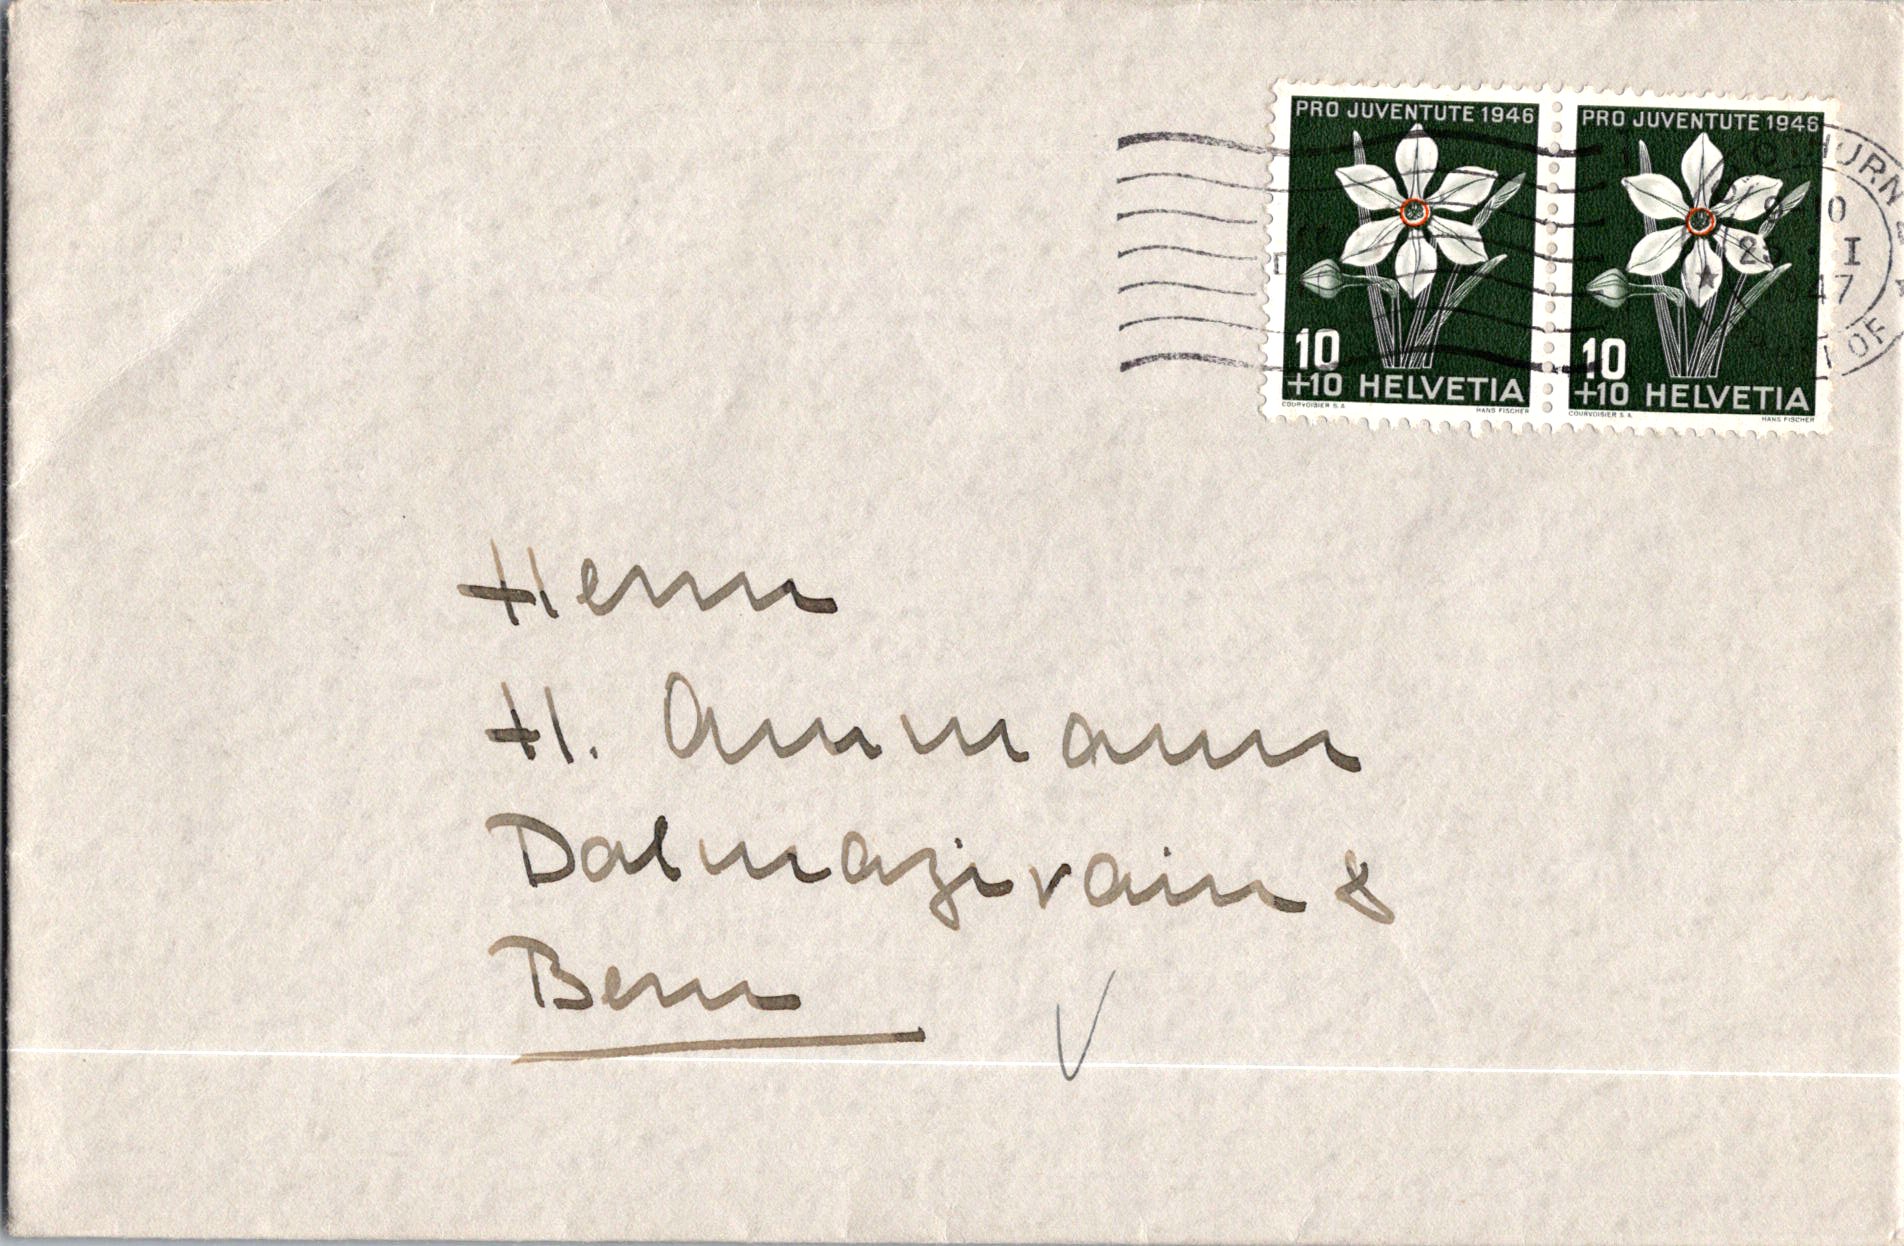 PRO JUVENTUTE 1946
10
+10 HELVETIA
COURVOISIER S.A.
HANS FISCHER
PRO JUVENTUTE 1946
10
+10 HELVETIA
COURVOISIER S.A.
HANS FISCHER
47
Herrn
H. Ammann
Dalmazirain 8
Bern